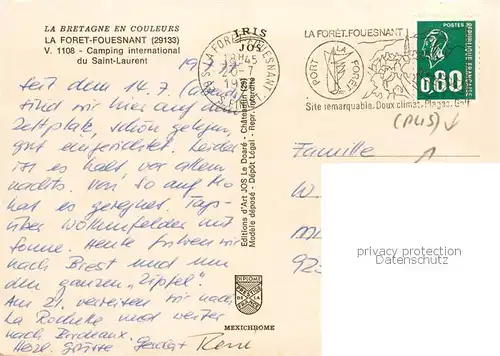 LA BRETAGNE EN COULEURS
LA FORÊT-FOUESNANT (29133)
V. 1108 - Camping international
du Saint-Laurent
IRIS
JOS
Editions d'Art JOS Le Doaré - Châteaulin (29)
Modèle déposé - Dépôt Légal - Repr. interdite
Seit dem 14.7.
sind wir hier auf dem
Zeltplatz, schön gelegen,
gut eingerichtet. Leider
ist es kalt, vor allem
nachts. Von So auf Mo
hat es geregnet, Tags-
über Wolkenfelder mit
Sonne. Heute fuhren wir
nach Brest und um
den ganzen "Zipfel".
Am 21. verreisen wir nach
La Rochelle und weiter
nach Bordeaux.
Herzl. Grüsse
DIPLOME
PRESTIGE
DE LA
FRANCE
MEXICHROME
LA FORET-FOUESNANT
LA FORÊT.FOUESNANT
PORT LA FORÊT
Site remarquable. Doux climat. Plages. Golf
POSTES
0,80
REPUBLIQUE FRANCAISE
Famille
W.
privacy protection
Datenschutz